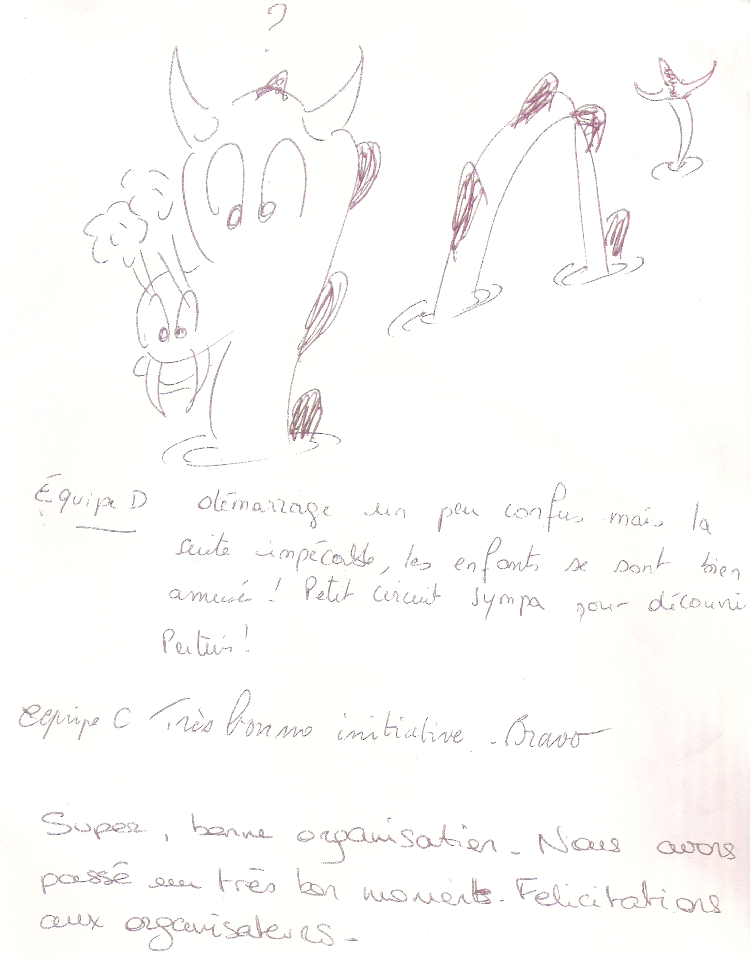 ?
Équipe D démarrage un peu confus mais la
suite impécable, les enfants se sont bien
amusé ! Petit circuit sympa pour découvrir
Pertuis !
equipe C Très bonne initiative. Bravo
Super, bonne organisation. Nous avons
passé un très bon moment. Felicitations
aux organisateurs.